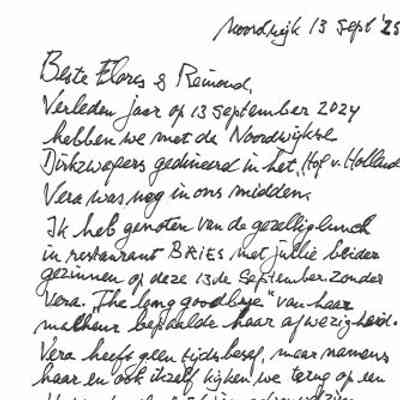 Noordwijk 13 sept '25
Beste Floris & Reinoud,
Verleden jaar op 13 september 2024
hebben we met de Noordwijkse
Dirkzwagers gedineerd in het "Hof v. Holland
Vera was nog in ons midden.
Ik heb genoten van de gezellig lunch
in restaurant BRIES met jullie beider
gezinnen op deze 13de September. Zonder
Vera. "The long goodbye" van haar
malheur bepaalde haar afwezigheid.
Vera heeft geen tijdsbesef, maar namens
haar en ook ikzelf kijken we terug op een